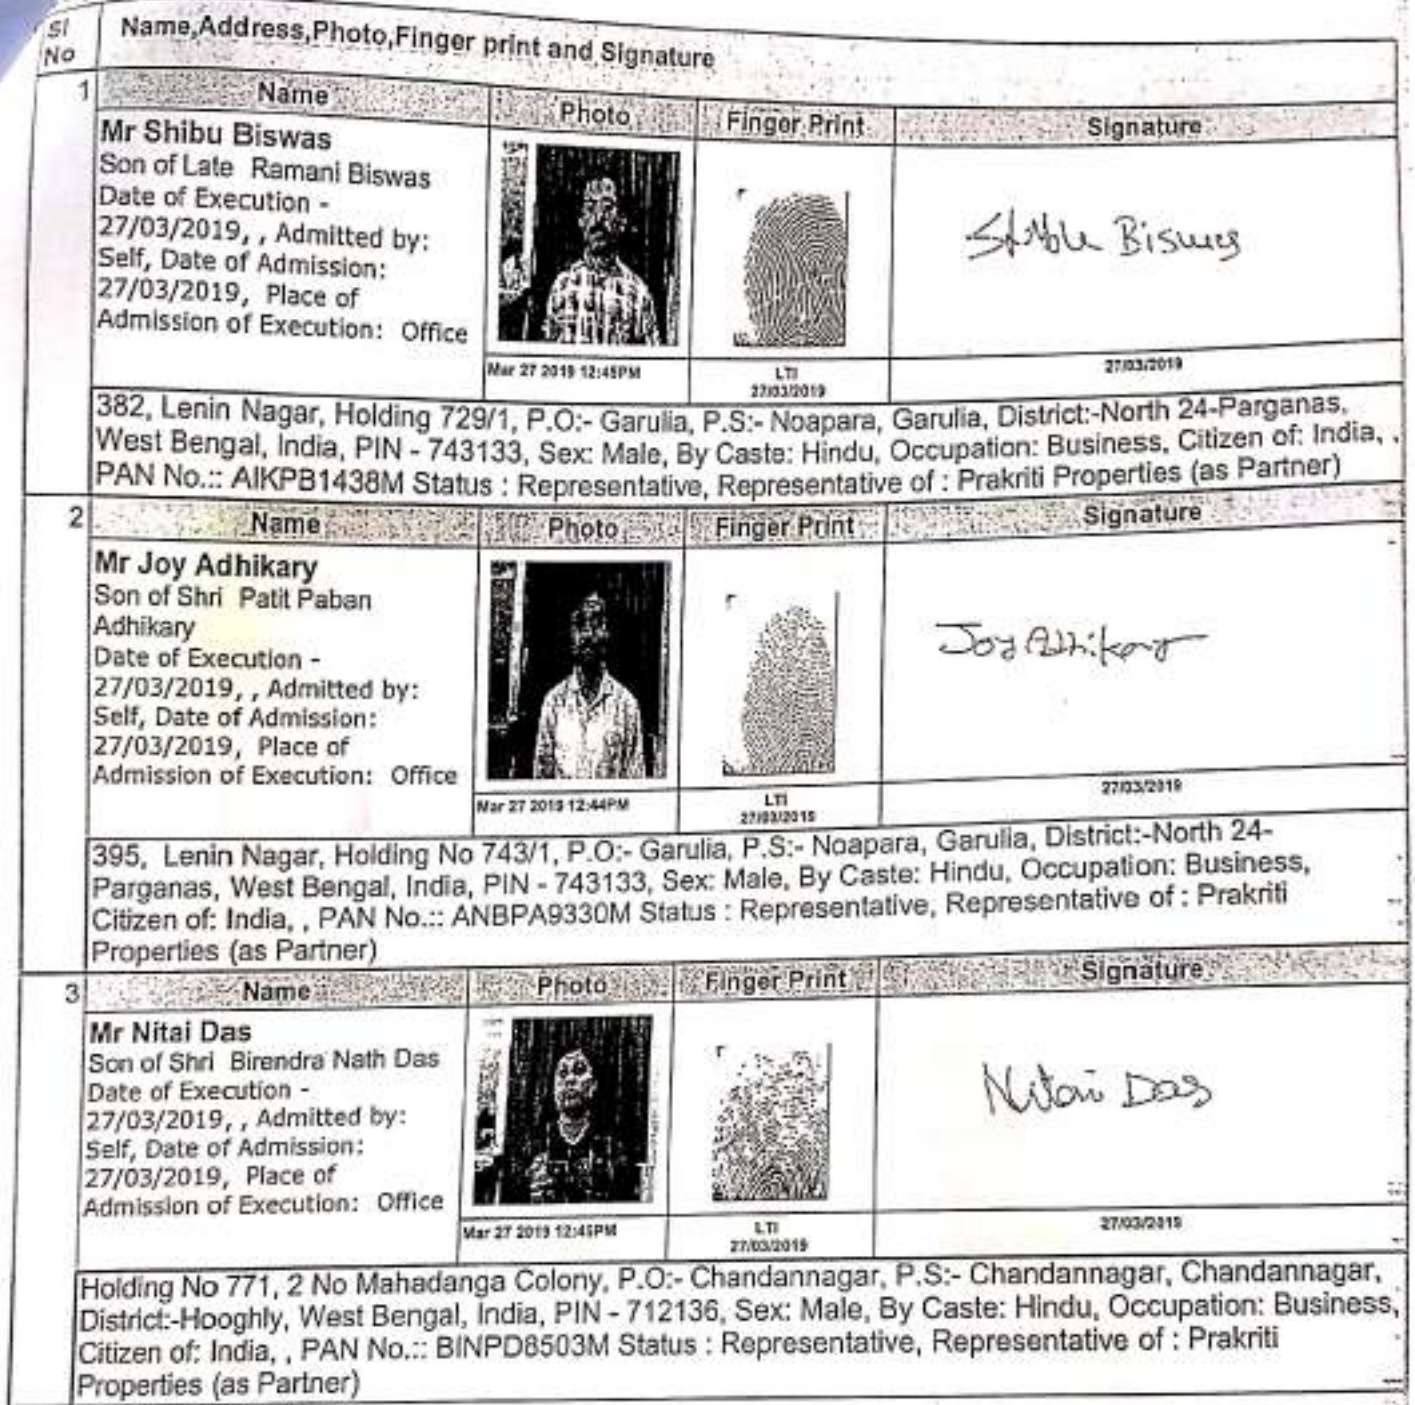 Sl
No
Name,Address,Photo,Finger print and Signature
1
Name
Photo
Finger Print
Signature
Mr Shibu Biswas
Son of Late Ramani Biswas
Date of Execution -
27/03/2019, , Admitted by:
Self, Date of Admission:
27/03/2019, Place of
Admission of Execution: Office
Shibu Biswas
Mar 27 2019 12:45PM
LTI
27/03/2019
27/03/2019
382, Lenin Nagar, Holding 729/1, P.O:- Garulia, P.S:- Noapara, Garulia, District:-North 24-Parganas,
West Bengal, India, PIN - 743133, Sex: Male, By Caste: Hindu, Occupation: Business, Citizen of: India, ,
PAN No.:: AIKPB1438M Status : Representative, Representative of : Prakriti Properties (as Partner)
2
Name
Photo
Finger Print
Signature
Mr Joy Adhikary
Son of Shri Patit Paban
Adhikary
Date of Execution -
27/03/2019, , Admitted by:
Self, Date of Admission:
27/03/2019, Place of
Admission of Execution: Office
Joy Adhikary
Mar 27 2019 12:44PM
LTI
27/03/2019
27/03/2019
395, Lenin Nagar, Holding No 743/1, P.O:- Garulia, P.S:- Noapara, Garulia, District:-North 24-
Parganas, West Bengal, India, PIN - 743133, Sex: Male, By Caste: Hindu, Occupation: Business,
Citizen of: India, , PAN No.:: ANBPA9330M Status : Representative, Representative of : Prakriti
Properties (as Partner)
3
Name
Photo
Finger Print
Signature
Mr Nitai Das
Son of Shri Birendra Nath Das
Date of Execution -
27/03/2019, , Admitted by:
Self, Date of Admission:
27/03/2019, Place of
Admission of Execution: Office
Nitai Das
Mar 27 2019 12:45PM
LTI
27/03/2019
27/03/2019
Holding No 771, 2 No Mahadanga Colony, P.O:- Chandannagar, P.S:- Chandannagar, Chandannagar,
District:-Hooghly, West Bengal, India, PIN - 712136, Sex: Male, By Caste: Hindu, Occupation: Business,
Citizen of: India, , PAN No.:: BINPD8503M Status : Representative, Representative of : Prakriti
Properties (as Partner)